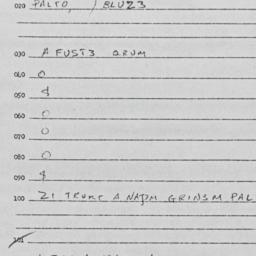 020 PALTO, / BLUZ3
030 A FUST3 QRUM
040 O
050 &
060 O
070 O
080 O
090 &
100 ZI TRUKT A NAJM GRINSM PAL
101